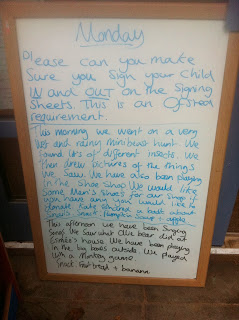 Monday
Please can you make
Sure you sign your child
IN and OUT on the signing
Sheets. This is an Ofsted
requirement.
This morning we went on a very
wet and rainy minibeast hunt. We
found lots of different insects. We
then drew pictures of the things
we saw. We have also been playing
in the shoe shop. We would like
some Men's shoes for our shop if
you have any you would like to
donate. Kate a book about
Snack
This afternoon we have been singing
Songs. We saw what Olie bear did at
house. We have been playing
in the big boxes outside. We played
with a Monkey game.
Snack fruit bread + banana